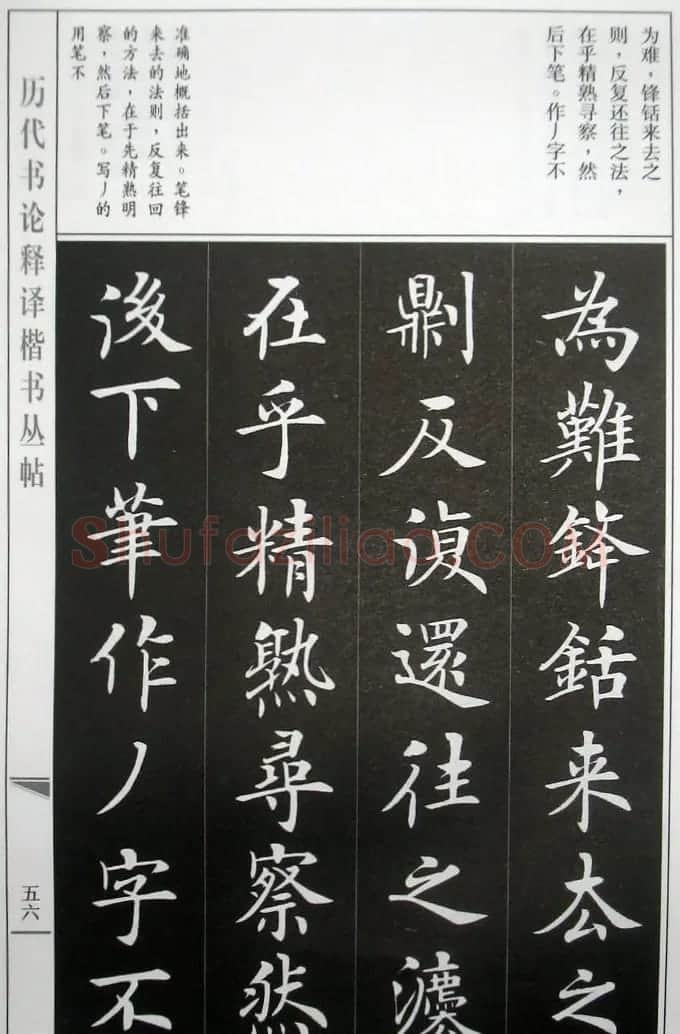 为难，锋铦来去之
则，反复还往之法，
在乎精熟寻察，然
后下笔。作丿字不
准确地概括出来。笔锋
来去的法则，反复往回
的方法，在于先精熟明
察，然后下笔。写丿的
用笔不
为難鋒銛来去之
劓反復還往之灋
在乎精熟尋察然
後下筆作丿字不
历代书论释译楷书丛帖
五六
Shufaziliao.COM